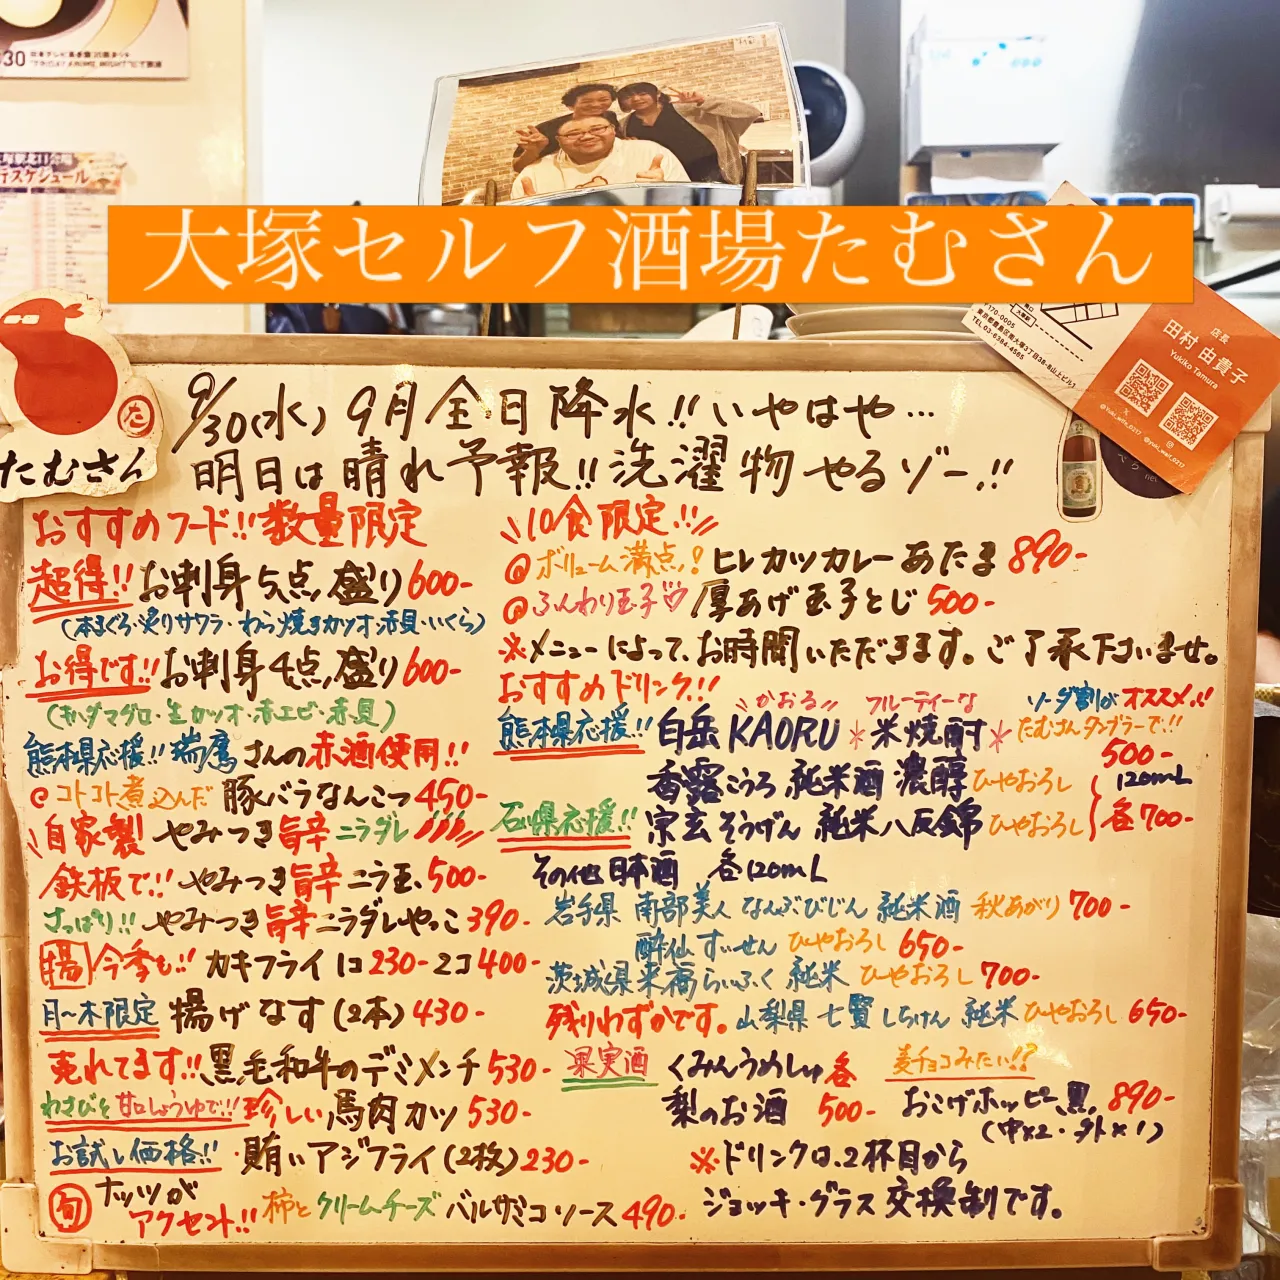 大塚セルフ酒場たむさん
テスケジュール
〒170-0005
TEL 03-6384-4565
店長
田村 由貴子
Yukiko Tamura
た
たむさん
9/30(水) 9月全日降水!!いやはや…
明日は晴れ予報!!洗濯物やるゾー!!
おすすめフード!!数量限定
超得!! お刺身5点盛り600-
(本まぐろ・炙りサワラ・わら焼きカツオ・赤貝・いくら)
お得です!!お刺身4点盛り600-
(キハダマグロ・生カツオ・赤エビ・赤貝)
熊本県応援!!瑞鷹さんの赤酒使用!!
コトコト煮込んだ 豚バラなんこつ450-
自家製 やみつき旨辛ニラダレ
鉄板で!! やみつき旨辛ニラ玉500-
さっぱり!! やみつき旨辛ニラダレやっこ390-
揚 今季も!! カキフライ1コ230-2コ400-
月〜木限定 揚げなす(2本)430-
売れてます!!黒毛和牛のデミメンチ530-
わさびと甘口しょうゆで!!珍しい馬肉カツ530-
お試し価格!! 賄いアジフライ(2枚)230-
旬 ナッツが
アクセント!! 柿とクリームチーズ バルサミコソース490-
10食限定!!
@ボリューム満点! ヒレカツカレーあたま890-
@ふんわり玉子♡ 厚あげ玉子とじ500-
※メニューによって、お時間いただきます。ご了承下さいませ。
おすすめドリンク!!
かおる フルーティーな ソーダ割がオススメ!!
熊本県応援!! 白岳KAORU *米焼酎* たむさんタンブラーで!!
500-
香露こうろ 純米酒 濃醇 ひやおろし 120mL
石川県応援!! 宗玄そうげん 純米八反錦 ひやおろし 各700-
その他日本酒 各120mL
岩手県 南部美人 なんぶびじん 純米酒 秋あがり700-
酔仙 すいせん ひやおろし 650-
茨城県 来福らいふく 純米 ひやおろし 700-
残りわずかです。山梨県 七賢 しちけん 純米ひやおろし 650-
果実酒 くみんうめしゅ 各
梨のお酒 500-
麦チョコみたい!?
おこげホッピー黒 890-
(中×2・外×1)
※ドリンクは、2杯目から
ジョッキ・グラス交換制です。